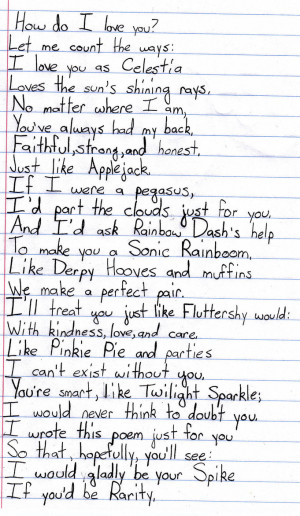 How do I love you?
Let me count the ways:
I love you as Celestia
Loves the sun's shining rays.
No matter where I am,
You've always had my back,
Faithful, strong, and honest,
Just like Applejack.
If I were a pegasus,
I'd part the clouds just for you.
And I'd ask Rainbow Dash's help
To make you a Sonic Rainboom.
Like Derpy Hooves and muffins
We make a perfect pair.
I'll treat you just like Fluttershy would:
With kindness, love, and care.
Like Pinkie Pie and parties
I can't exist without you.
You're smart, like Twilight Sparkle;
I would never think to doubt you.
I wrote this poem just for you
So that, hopefully, you'll see:
I would gladly be your Spike
If you'd be Rarity.